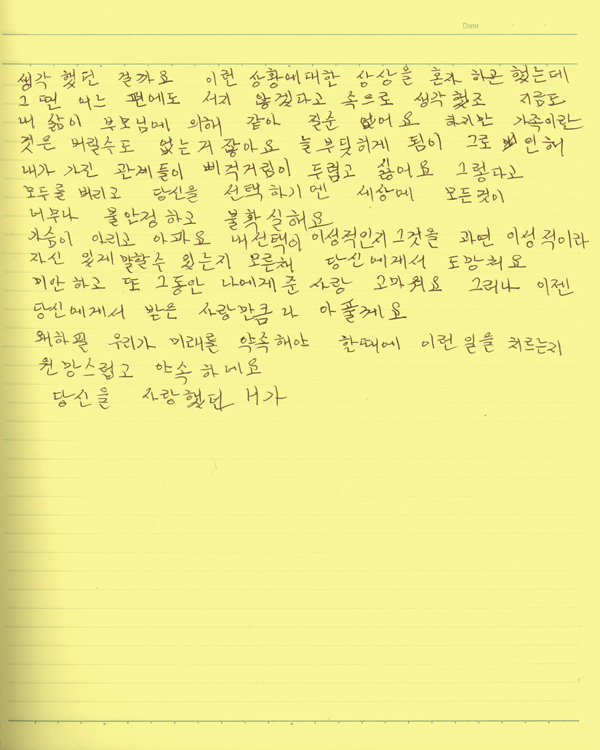 Date
생각 했던 걸까요 이런 상황에대한 상상을 혼자 하곤 했는데
그 땐 어느 편에도 서지 않겠다고 속으로 생각했죠 지금도
내 삶이 부모님에 의해 같아 질순 없어요 하지만 가족이란
것은 버릴수도 없는거 잖아요 늘 부딪히게 됨이 그로 인해
내가 가진 관계들이 삐걱거림이 두렵고 싫어요 그렇다고
모두를 버리고 당신을 선택하기엔 세상에 모든것이
너무나 불안정하고 불확실해요
가슴이 아리고 아파요 내선택이 이성적인지 그것을 과연 이성적이라
자신 있게 말할수 있는지 모른채 당신에게서 도망쳐요
미안하고 또 그동안 나에게 준 사랑 고마워요 그러나 이젠
당신에게서 받은 사랑만큼 다 아플게요
왜하필 우리가 미래를 약속해야 한때에 이런일을 치르는지
원망스럽고 야속하네요
당신을 사랑했던 H가